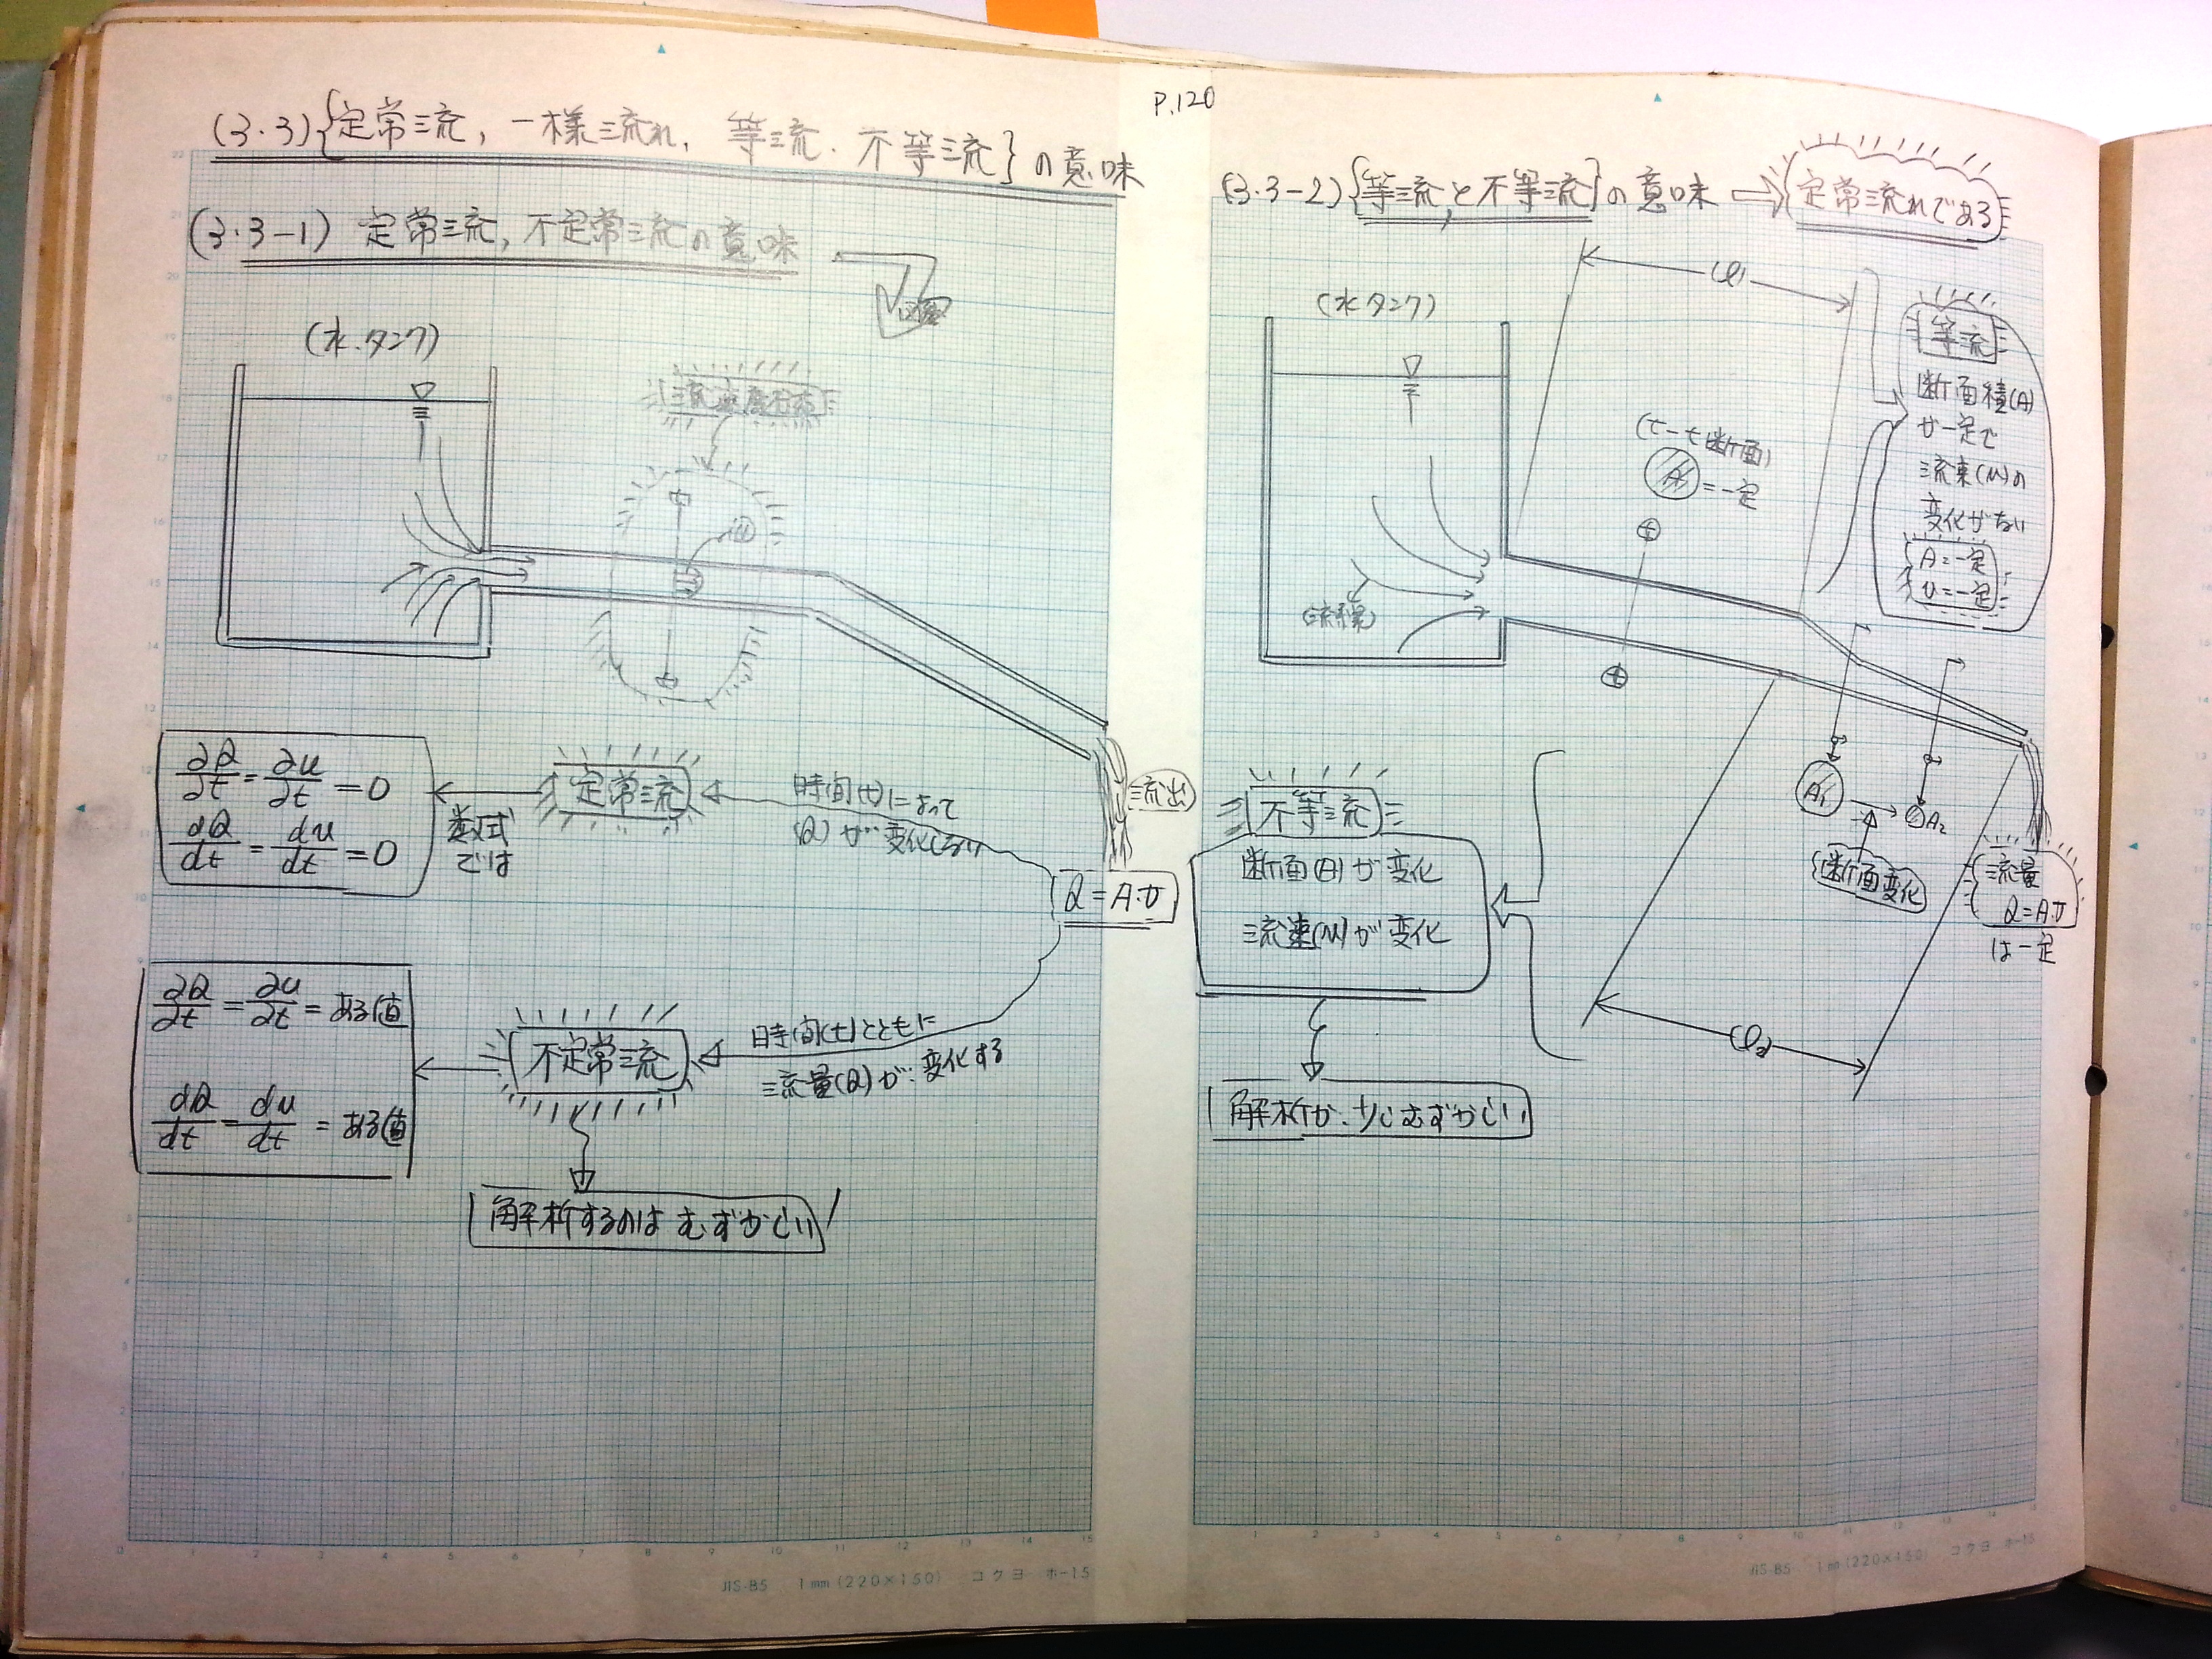 P.120
(3.3){定常流, 一様流れ, 等流. 不等流}の意味
(3.3-1) 定常流, 不定常流の意味
(水.タンク)
u
∂Q/∂t = ∂u/∂t = 0
dQ/dt = du/dt = 0
数式
では
定常流
時間(t)によって
(Q)が変化しない
流出
Q=A.v
∂Q/∂t = ∂u/∂t = ある値
dQ/dt = du/dt = ある値
不定常流
時間(t)とともに
流量(Q)が変化する
解析するのはむずかしい
(3.3-2){等流と不等流}の意味 ⇒ 定常流れである
(l1)
(水タンク)
(t-t断面)
A =一定
t
t
(流線)
等流
断面積(A)
が一定で
流速(u)の
変化がない
A=一定
u=一定
A1
A2
断面変化
流量
Q=A.v
は一定
不等流
断面(A)が変化
流速(u)が変化
(l2)
解析が.少しむずかしい
JIS-B5 1mm(220×150) コクヨ ホ-15
JIS-B5 1mm(220×150) コクヨ ホ-15